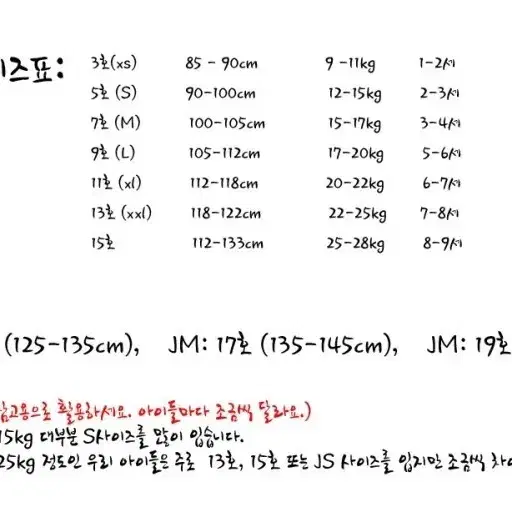 이즈표:
3호(xs) 85 - 90cm 9 -11kg 1-2세
5호 (S) 90-100cm 12-15kg 2-3세
7호 (M) 100-105cm 15-17kg 3-4세
9호 (L) 105-112cm 17-20kg 5-6세
11호 (xl) 112-118cm 20-22kg 6-7세
13호 (xxl) 118-122cm 22-25kg 7-8세
15호 112-133cm 25-28kg 8-9세
(125-135cm), JM: 17호 (135-145cm), JM: 19호
참고용으로 활용하세요. 아이들마다 조금씩 달라요.)
15kg 대부분 S사이즈를 많이 입습니다.
25kg 정도인 우리 아이들은 주로 13호, 15호 또는 JS 사이즈를 입지만 조금씩 차이